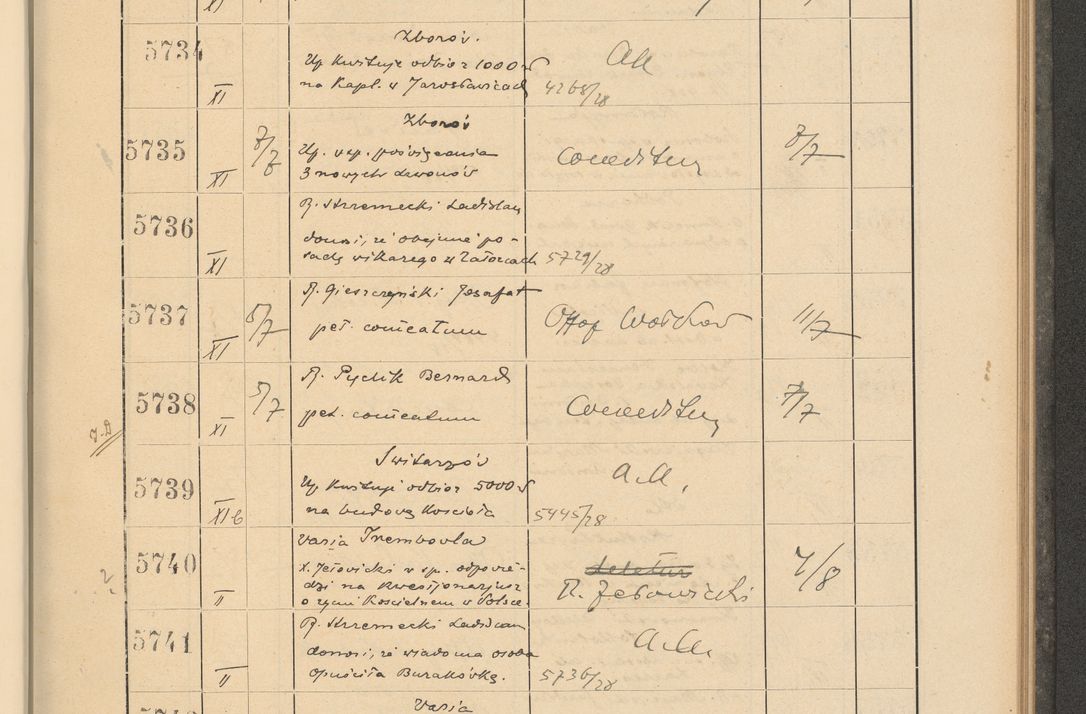 5734
XI
Zborów.
Up. kwituje odbiór 1000 zł
na Kapl. w Jarosławicach
A A
4268/28
5735
XI
Zborów
Up. w sp. poświęcania
3 nowych dzwonów
conceditur
5736
XI
R. Strzemecki Ladislaus
donosi, że obejmie po-
sadę wikarego w Załoźcach
5729/28
5737
XI
5/7
R. Gieszczyński Josafat
pet. comeatum
11/7
5738
XI
5/7
R. Pyclik Bernard
pet. comeatum
Conceditur
7/7
5739
XI b
Świtarzów
Up. kwituje odbiór 5000 zł
na budowę kościoła
A. A.
5445/28
5740
II
Varia Trembowla
X. Jełowicki w sp. odpowie-
dzi na kwestjonarjusz
o życiu kościelnem w Polsce.
R. Jełowicki
4/8
?
5741
II
R. Strzemecki Ladislaus
donosi, że wiadoma osoba
opuściła Burakówkę.
A. A.
5736/28
Varia